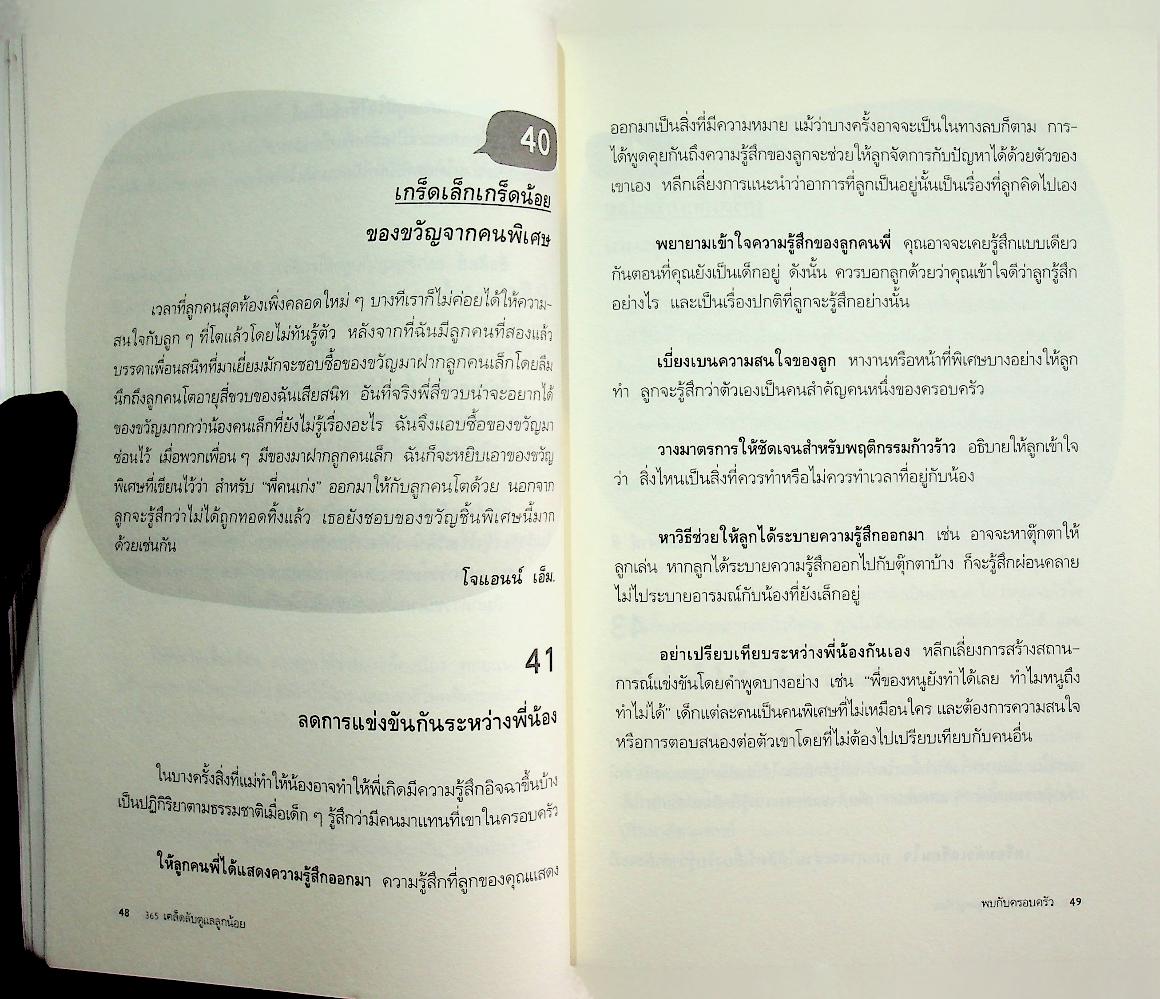 40
เกร็ดเล็กเกร็ดน้อย
ของขวัญจากคนพิเศษ
เวลาที่ลูกคนสุดท้องเพิ่งคลอดใหม่ ๆ บางทีเราก็ไม่ค่อยได้ให้ความ-
สนใจกับลูก ๆ ที่โตแล้วโดยไม่ทันรู้ตัว หลังจากที่ฉันมีลูกคนที่สองแล้ว
บรรดาเพื่อนสนิทที่มาเยี่ยมมักจะชอบซื้อของขวัญมาฝากลูกคนเล็กโดยลืม
นึกถึงลูกคนโตอายุสี่ขวบของฉันเสียสนิท อันที่จริงพี่สี่ขวบน่าจะอยากได้
ของขวัญมากกว่าน้องคนเล็กที่ยังไม่รู้เรื่องอะไร ฉันจึงแอบซื้อของขวัญมา
ซ่อนไว้ เมื่อพวกเพื่อน ๆ มีของมาฝากลูกคนเล็ก ฉันก็จะหยิบเอาของขวัญ
พิเศษที่เขียนไว้ว่า สำหรับ “พี่คนเก่ง” ออกมาให้กับลูกคนโตด้วย นอกจาก
ลูกจะรู้สึกว่าไม่ได้ถูกทอดทิ้งแล้ว เธอยังชอบของขวัญชิ้นพิเศษนี้มาก
ด้วยเช่นกัน
โจแอนน์ เอ็ม.
41
ลดการแข่งขันกันระหว่างพี่น้อง
ในบางครั้งสิ่งที่แม่ทำให้น้องอาจทำให้พี่เกิดมีความรู้สึกอิจฉาขึ้นบ้าง
เป็นปฏิกิริยาตามธรรมชาติเมื่อเด็ก ๆ รู้สึกว่ามีคนมาแทนที่เขาในครอบครัว
ให้ลูกคนพี่ได้แสดงความรู้สึกออกมา ความรู้สึกที่ลูกของคุณแสดง
48 365 เคล็ดลับดูแลลูกน้อย
ออกมาเป็นสิ่งที่มีความหมาย แม้ว่าบางครั้งอาจจะเป็นในทางลบก็ตาม การ-
ได้พูดคุยกันถึงความรู้สึกของลูกจะช่วยให้ลูกจัดการกับปัญหาได้ด้วยตัวของ
เขาเอง หลีกเลี่ยงการแนะนำว่าอาการที่ลูกเป็นอยู่นั้นเป็นเรื่องที่ลูกคิดไปเอง
พยายามเข้าใจความรู้สึกของลูกคนพี่ คุณอาจจะเคยรู้สึกแบบเดียว
กันตอนที่คุณยังเป็นเด็กอยู่ ดังนั้น ควรบอกลูกด้วยว่าคุณเข้าใจดีว่าลูกรู้สึก
อย่างไร และเป็นเรื่องปกติที่ลูกจะรู้สึกอย่างนั้น
เบี่ยงเบนความสนใจของลูก หางานหรือหน้าที่พิเศษบางอย่างให้ลูก
ทำ ลูกจะรู้สึกว่าตัวเองเป็นคนสำคัญคนหนึ่งของครอบครัว
วางมาตรการให้ชัดเจนสำหรับพฤติกรรมก้าวร้าว อธิบายให้ลูกเข้าใจ
ว่า สิ่งไหนเป็นสิ่งที่ควรทำหรือไม่ควรทำเวลาที่อยู่กับน้อง
หาวิธีช่วยให้ลูกได้ระบายความรู้สึกออกมา เช่น อาจจะหาตุ๊กตาให้
ลูกเล่น หากลูกได้ระบายความรู้สึกออกไปกับตุ๊กตาบ้าง ก็จะรู้สึกผ่อนคลาย
ไม่ไประบายอารมณ์กับน้องที่ยังเล็กอยู่
อย่าเปรียบเทียบระหว่างพี่น้องกันเอง หลีกเลี่ยงการสร้างสถาน-
การณ์แข่งขันโดยคำพูดบางอย่าง เช่น “พี่ของหนูยังทำได้เลย ทำไมหนูถึง
ทำไม่ได้” เด็กแต่ละคนเป็นคนพิเศษที่ไม่เหมือนใคร และต้องการความสนใจ
หรือการตอบสนองต่อตัวเขาโดยที่ไม่ต้องไปเปรียบเทียบกับคนอื่น
พบกับครอบครัว 49